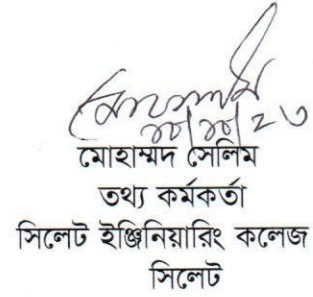 মোহাম্মদ সেলিম
তথ্য কর্মকর্তা
সিলেট ইঞ্জিনিয়ারিং কলেজ
সিলেট